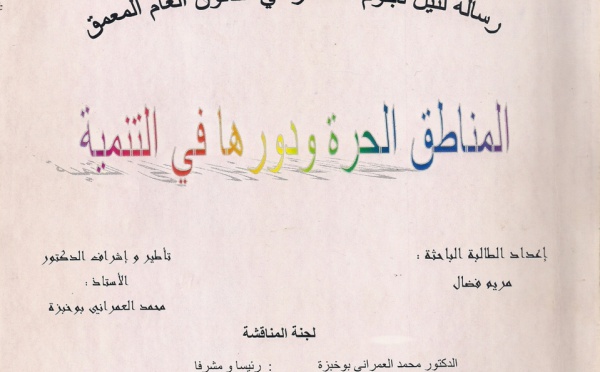 رسالة لنيل في العام المعمق
المناطق الحرة ودورها في التنمية
إعداد الطالبة الباحثة :
مريم فضال
تأطير و إشراف الدكتور
الأستاذ :
محمد العمراني بوخبزة
لجنة المناقشة
الدكتور محمد العمراني بوخبزة : رئيسا و مشرفا